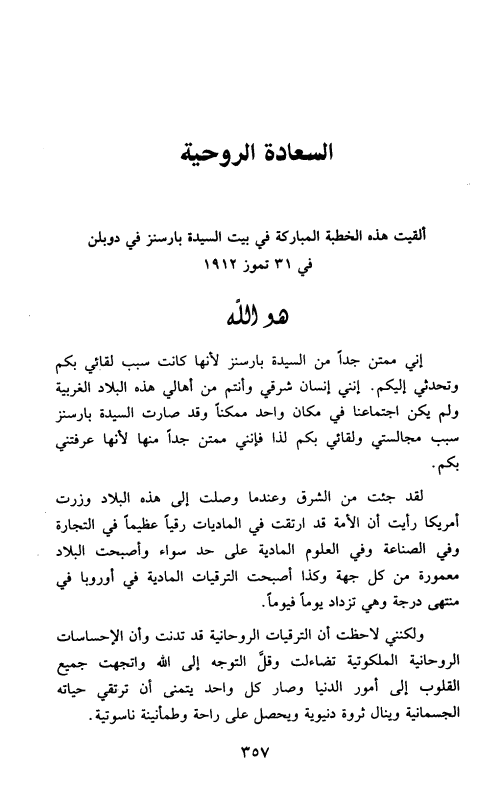 السعادة الروحية
ألقيت هذه الخطبة المباركة في بيت السيدة بارسنز في دوبلن
في ٣١ تموز ١٩١٢
هو الله
إني ممتن جداً من السيدة بارسنز لأنها كانت سبب لقائي بكم
وتحدثي إليكم. إنني إنسان شرقي وأنتم من أهالي هذه البلاد الغربية
ولم يكن اجتماعنا في مكان واحد ممكناً وقد صارت السيدة بارسنز
سبب مجالستي ولقائي بكم لذا فإنني ممتن جداً منها لأنها عرفتني
بكم.
لقد جئت من الشرق وعندما وصلت إلى هذه البلاد وزرت
أمريكا رأيت أن الأمة قد ارتقت في الماديات رقياً عظيماً في التجارة
وفي الصناعة وفي العلوم المادية على حد سواء وأصبحت البلاد
معمورة من كل جهة وكذا أصبحت الترقيات المادية في أوروبا في
منتهى درجة وهي تزداد يوماً فيوماً.
ولكنني لاحظت أن الترقيات الروحانية قد تدنت وأن الإحساسات
الروحانية الملكوتية تضاءلت وقلَّ التوجه إلى الله واتجهت جميع
القلوب إلى أمور الدنيا وصار كل واحد يتمنى أن ترتقي حياته
الجسمانية وينال ثروة دنيوية ويحصل على راحة وطمأنينة ناسوتية.
٣٥٧